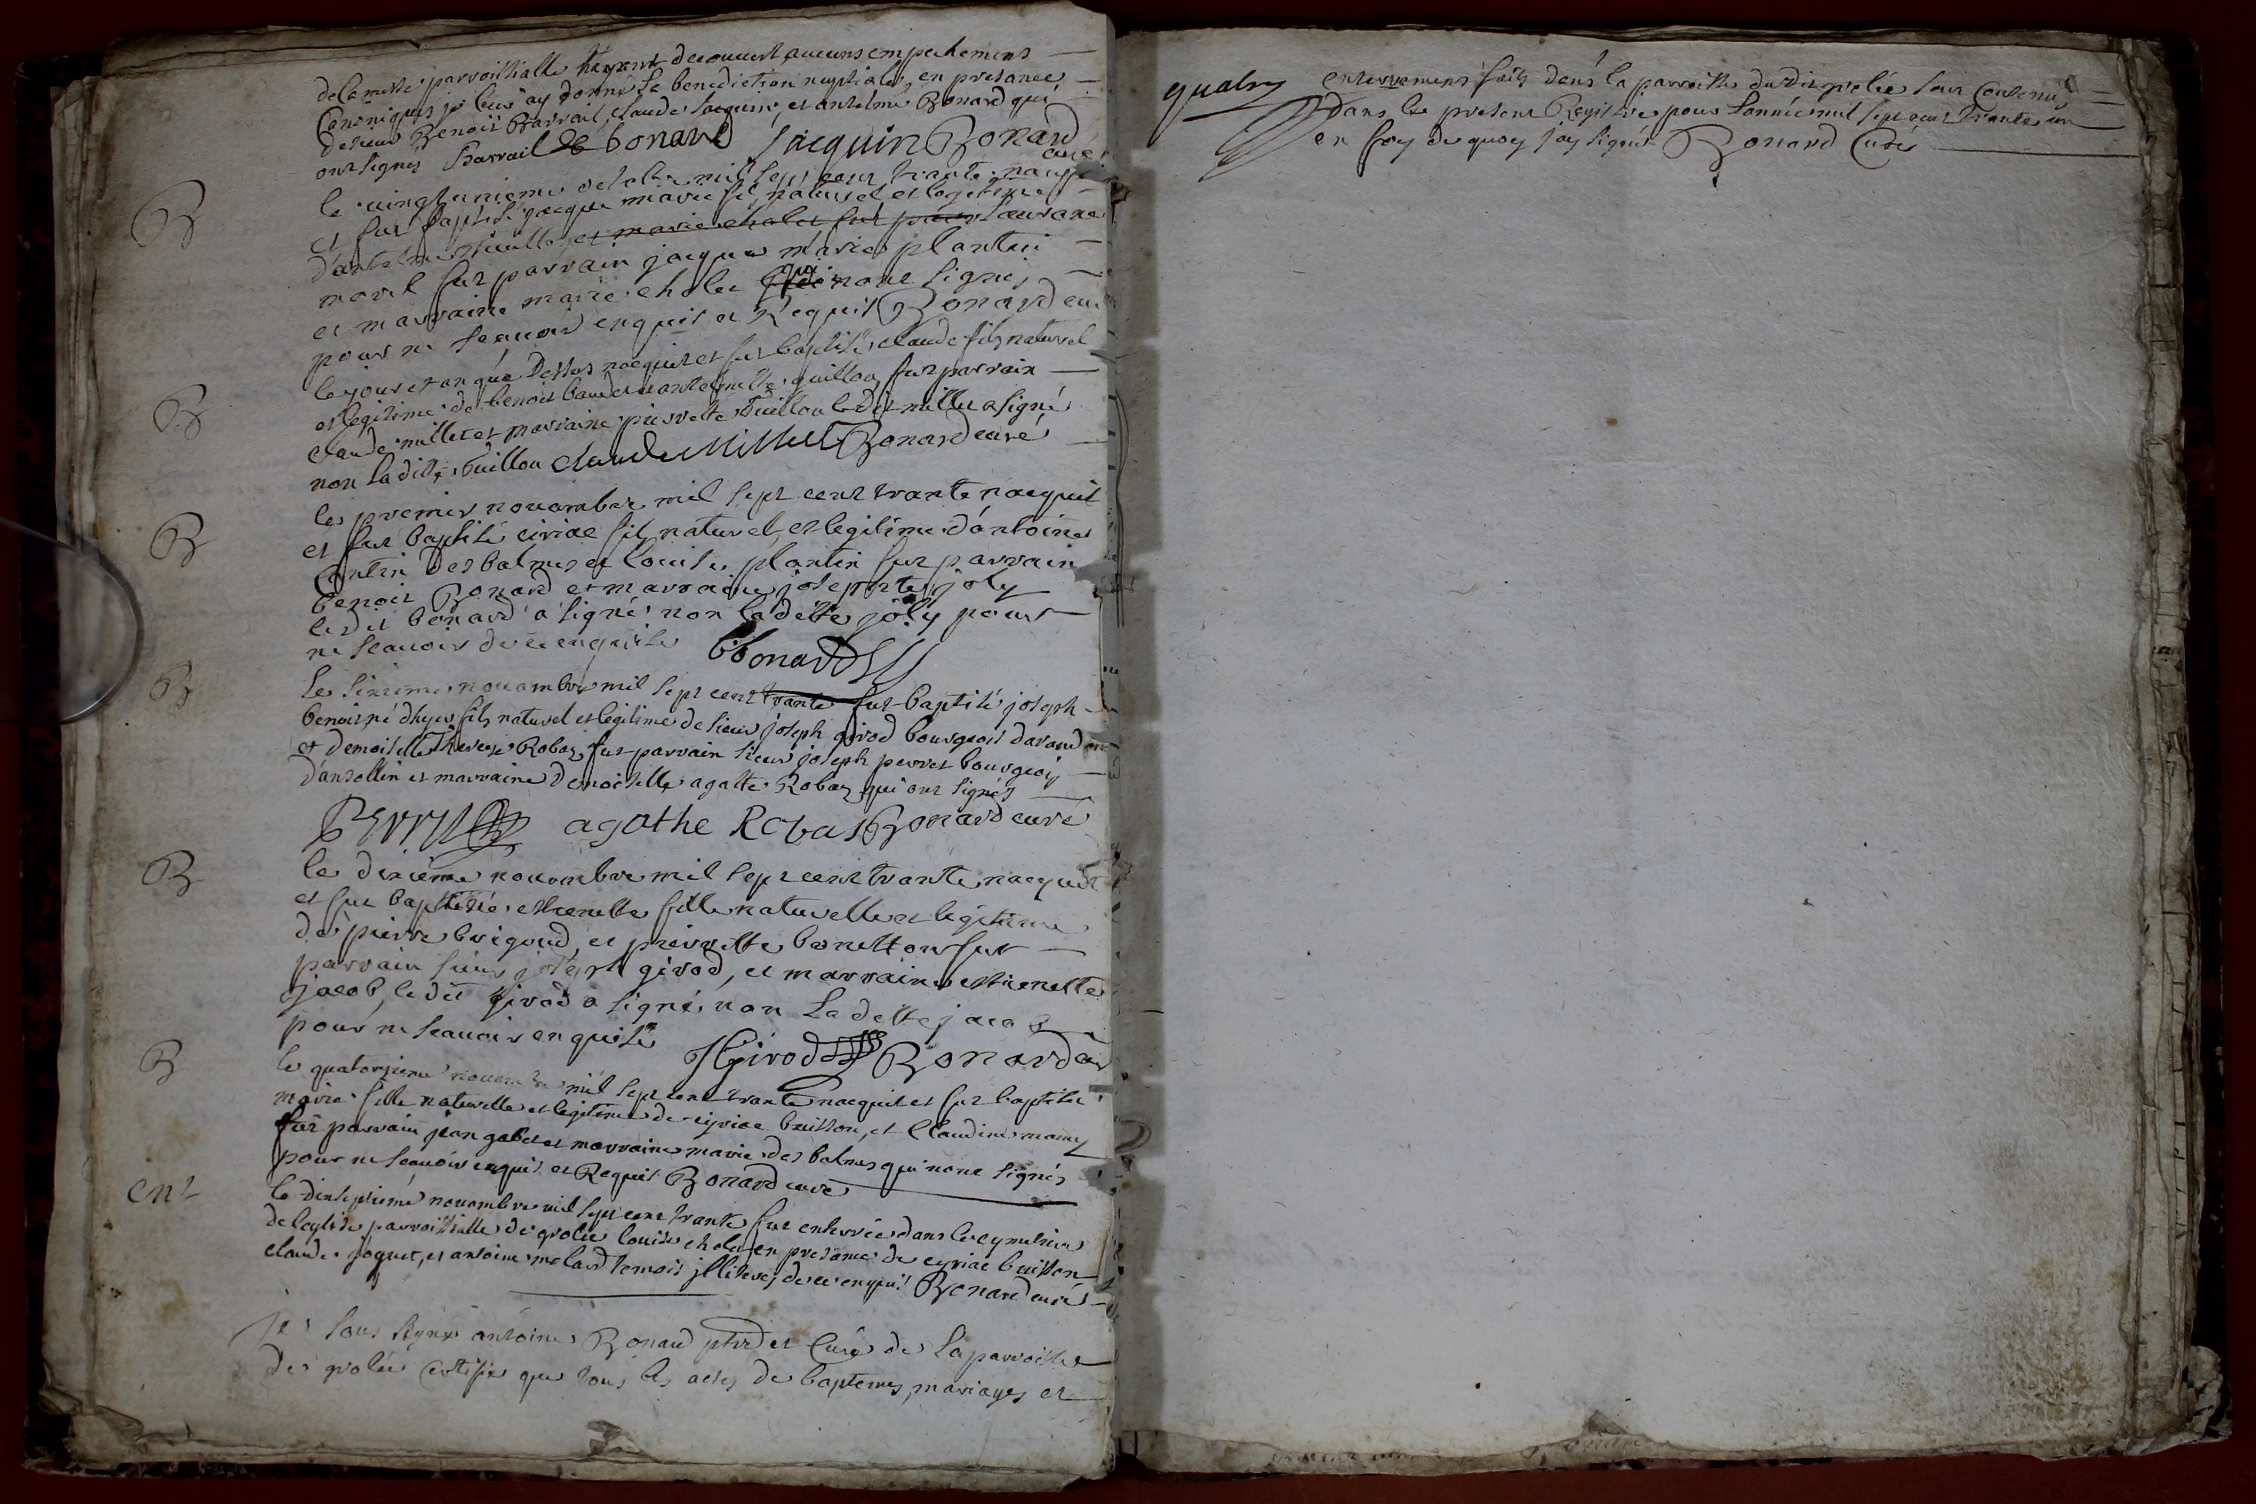 de la messe parroissialle n'ayant decouvert aucuns empechemens
Canoniques je leur ay donné la benediction nuptiale, en presance
de sieur Benoit Barrail, claude Jacquin, et antelme Bonard qui
ont signés Barrail B bonard Jacquin Bonard
curé
B
le vingtunieme octobre mil sept cent trante nacquit
et fut baptisé jacque marie fils naturel et legitime
d'antelme et marie cholet fut parr Laurance
morel fut parrain jacque marie plantin
et marraine marie cholet qui nont signés
pour ne scauoir enquis et Requis Bonard curé
B
le jour et an que Dessus nacquit et fut baptisé claude fils naturel
et legitime de benoit baudet antoinette guillon, fut parrain
claude millet et marraine pierrette guillon ledit millet a signé
non la dite guillon claude Millet Bonard curé
B
le premier nouambre mil sept cent trante nacquit
et fut baptisé ciriac fils naturel et legitime d'antoine
Contin des balmes et Louise plantin fut parrain
benoit Bonard et marraine josepte joly
ledit bonard a signé non la ditte joly pour
ne scauoir de ce enquise bbonard
B
Le sixieme nouambre mil sept cent trante fut baptisé joseph
benoit né d'hyer fils naturel et legitime de sieur joseph girod bourgeois
et demoiselle Therese Robas, fut parrain sieur joseph perret bourgeois
d'andellin et marraine demoiselle agatte Robas qui ont signés
Perret agathe Robas Bonard curé
B
le dixieme nouambre mil sept cent trante nacquit
et fut baptisée estienette fille naturelle et legitime
de pierre brigoud, et pierrette bonetton fut
parrain sieur joseph girod, et marraine estienette
jacob, ledit girod a signé non La ditte jacob
pour ne scauoir enquise JGirod Bonard curé
B
le quatorzieme nouambre mil sept cent trante nacquit et fut baptisée
marie fille naturelle et legitime de cyriac buisson, et Claudine mamy
fut parrain jean gabet et marraine marie des balmes qui nont signés
pour ne scauoir enquis et Requis Bonard curé
ent
le dixseptieme nouambre mil sept cent trante fut enterrée dans le cymetiere
de leglise parroissialle de grolée louise cholet en presance de cyriac buisson
claude joguet, et antoine molard temois jlliterés de ce enquis Bonard curé
je sous signé antoine Bonard pbtre et Curé de La parroisse
de grolée Certifie que tous les actes de baptemes, mariages et
quatry
enterremens faits dans la parroisse dudit grolée sont Contenus
dans le present Registre pour L'année mil sept cent trante un
en foy de quoy j'ay signé Bonard Curé